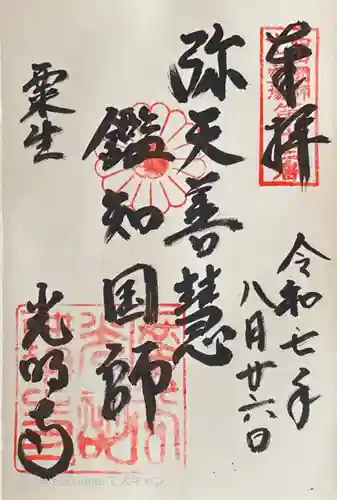 奉拝
令和七年
八月廿六日
弥天善慧
鑑知国師
粟生
光明寺